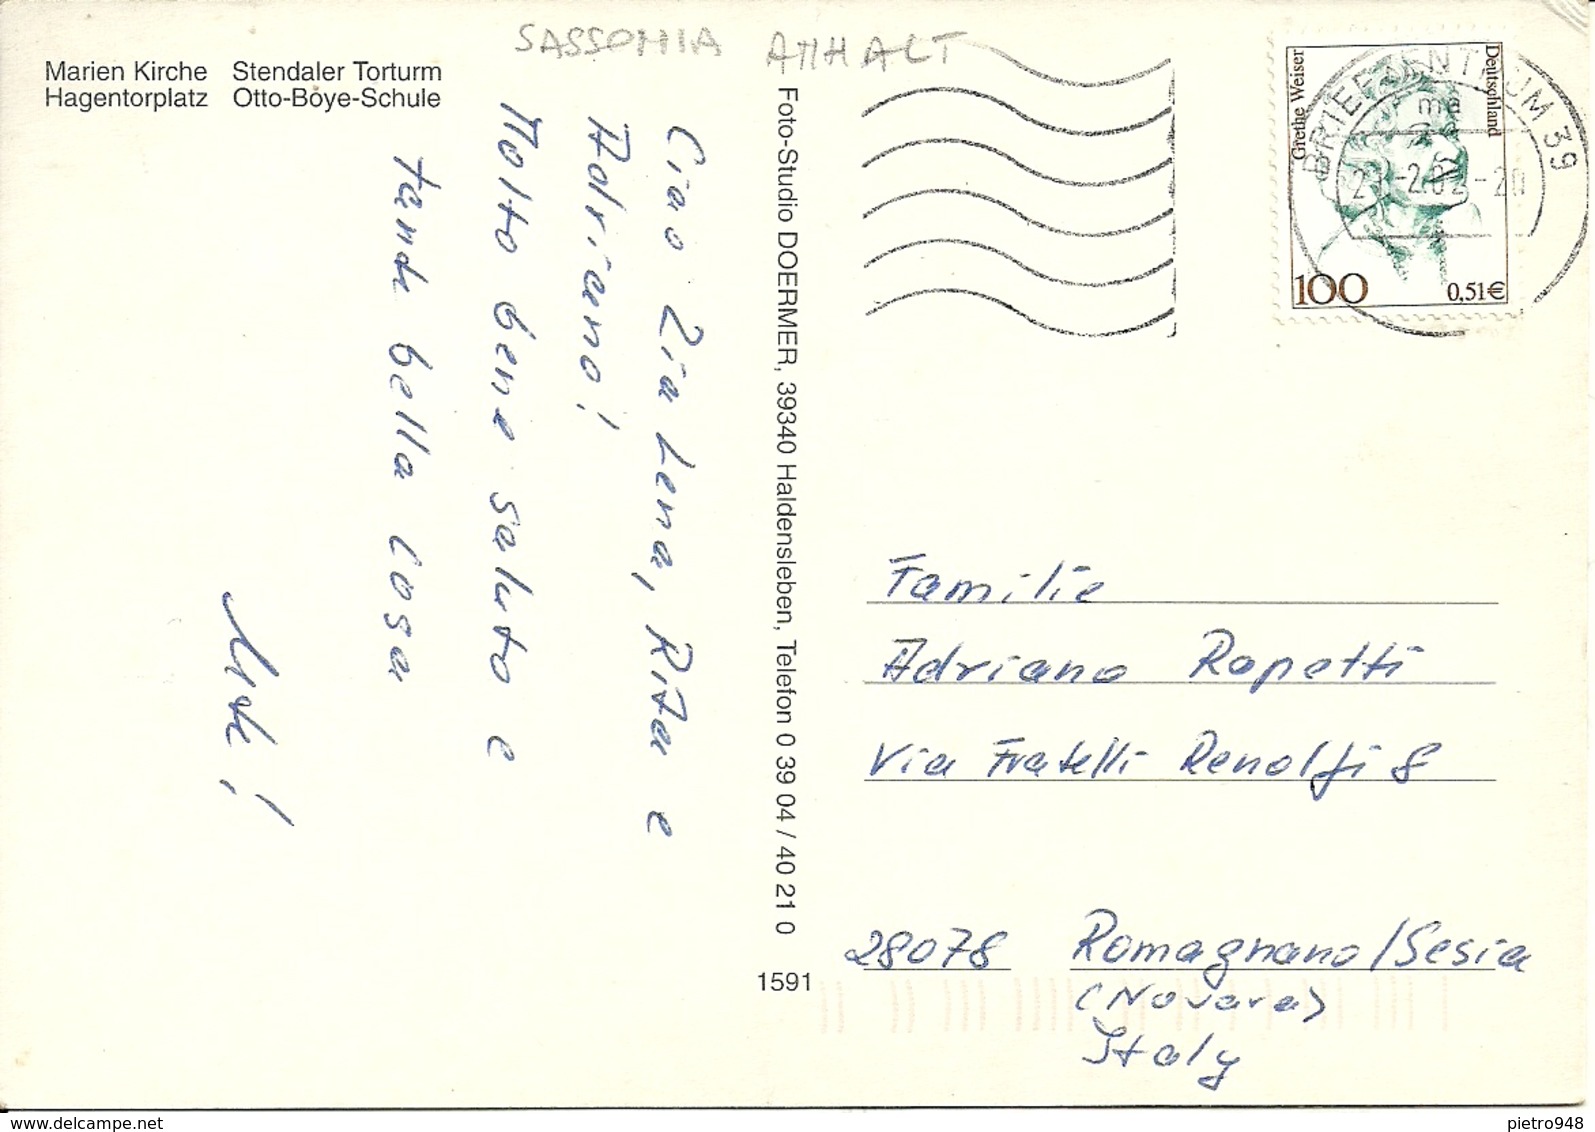 SASSONIA ANHALT
Marien Kirche Stendaler Torturm
Hagentorplatz Otto-Boye-Schule
Ciao Zia Lena, Rita e
Adriano!
Molto bene saluto e
tande bella cosa
Foto-Studio DOERMER, 39340 Haldensleben, Telefon 0 39 04 / 40 21 0
1591
Grethe Weiser
Deutschland
100 0,51€
BRIEFZENTRUM 39
ma
Familie
Adriano Rapetti
Via Fratelli Renolfi 8
28078 Romagnano/Sesia
(Novara)
Italy
delcampe.net
pietro948